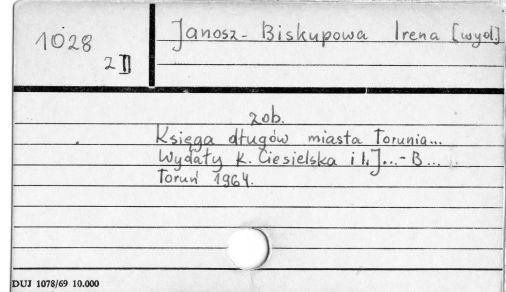 1028
2 II
Janosz-Biskupowa Irena [wyd.]
zob.
Księga długów miasta Torunia...
Wydały K. Ciesielska i I. J...-B...
Toruń 1964.
DUJ 1078/69 10.000